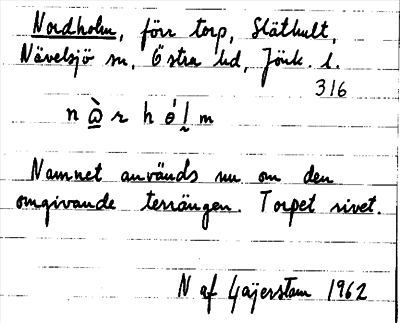 Nordholm, förr torp, Släthult,
Nävelsjö sn, Östra hd, Jönk. l.
316
n ɷ̀ r h ó l m
Namnet används nu om den
omgivande terrängen. Torpet rivet.
N af Gajerstam 1962